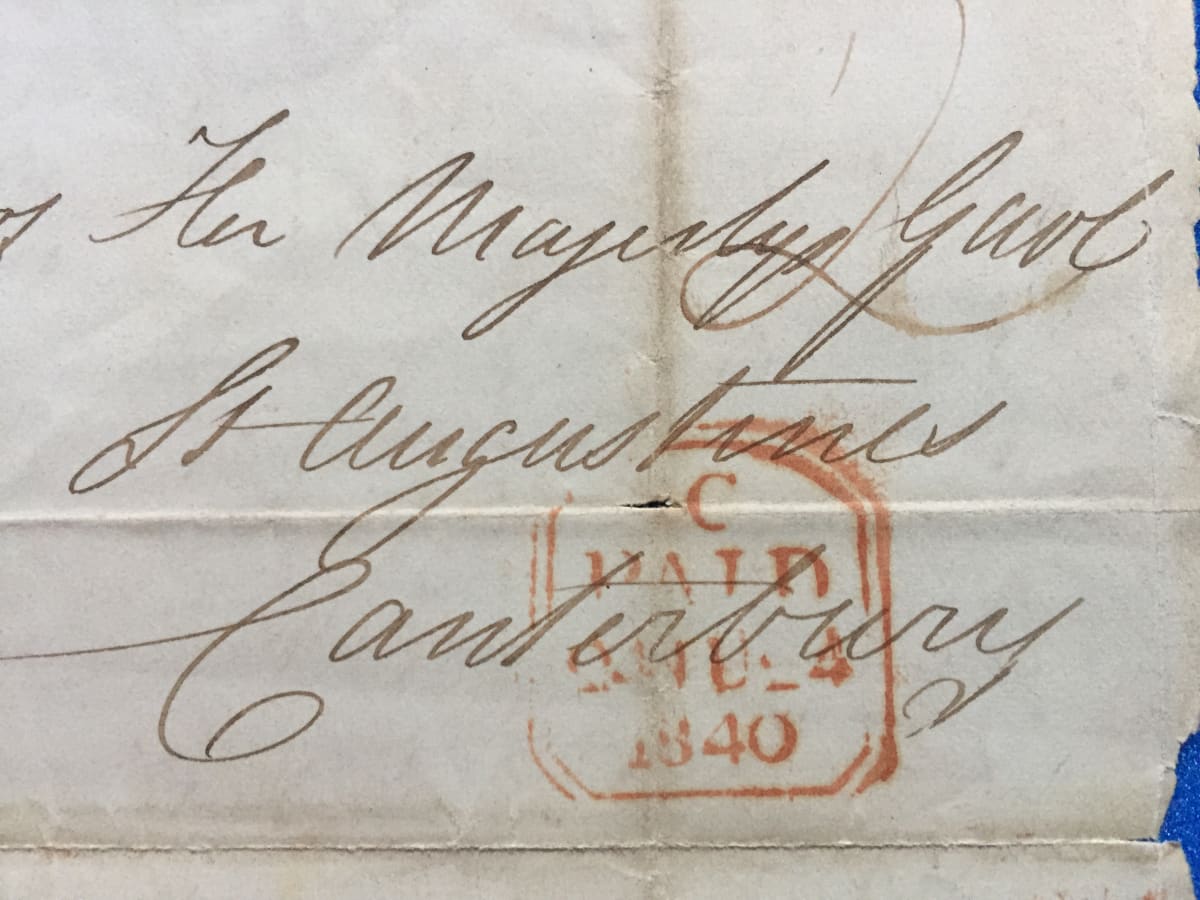 Her Majestys Gaol
St Augustines
Canterbury
C
PAID
4
1840